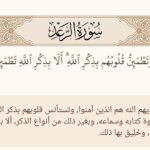 سُورَةُ الرَّعْدِ
تَطْمَئِنُّ قُلُوبُهُم بِذِكْرِ اللَّهِ ۗ أَلَا بِذِكْرِ اللَّهِ تَطْمَئِنُّ
يهم الله هم الذين آمنوا، وتستأنس قلوبهم بذكر الله
وة كتابه وسماعه، وبغير ذلك من أنواع الذكر، ألا بذ
، وخليق بها ذلك.